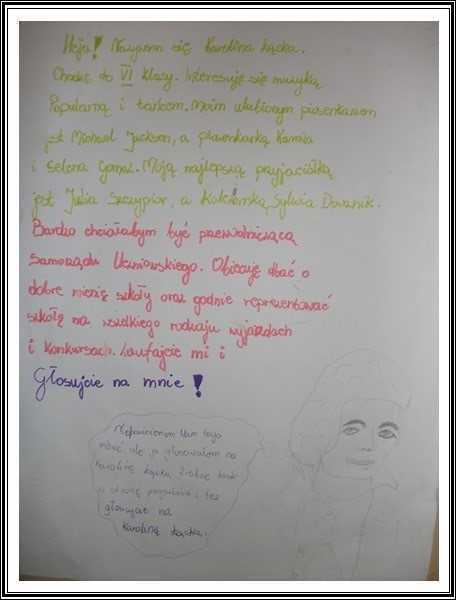 Heja! Nazywam się Karolina Łącka.
Chodzę do VI klasy. Interesuję się muzyką
Popularną i tańcem. Moim ulubionym piosenkarzem
jest Michael Jackson, a piosenkarką
i Selena Gomez. Moją najlepszą przyjaciółką
jest Julia Szczypior, a Koleżanką Sylwia
Bardzo chciałabym być przewodniczącą
Samorządu Uczniowskiego. Obiecuję dbać o
dobre mienię szkoły oraz godnie reprezentować
szkołę na wszelkiego rodzaju wyjazdach
i konkursach. Zaufajcie mi i
Głosujcie na mnie!
Nie powinienem Wam tego
mówić ale ja głosowałem na
Karolinę Łącką. Zróbcie krok
w stronę i też
głosujcie na
Karolinę Łącką.